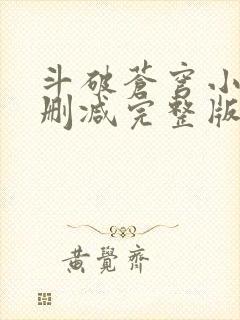 斗破苍穹小
删减完整版
黄觉齐